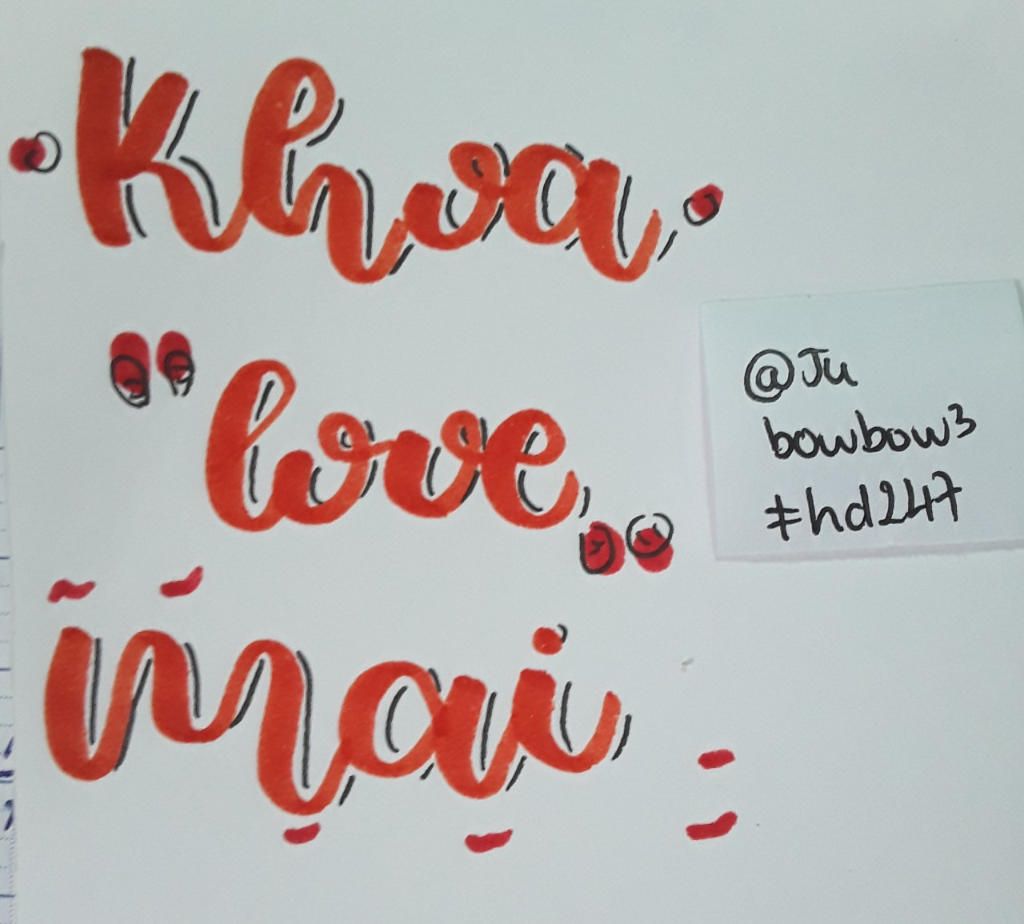 Khoa
"love"
mai
@Ju
bowbow3
#hd247